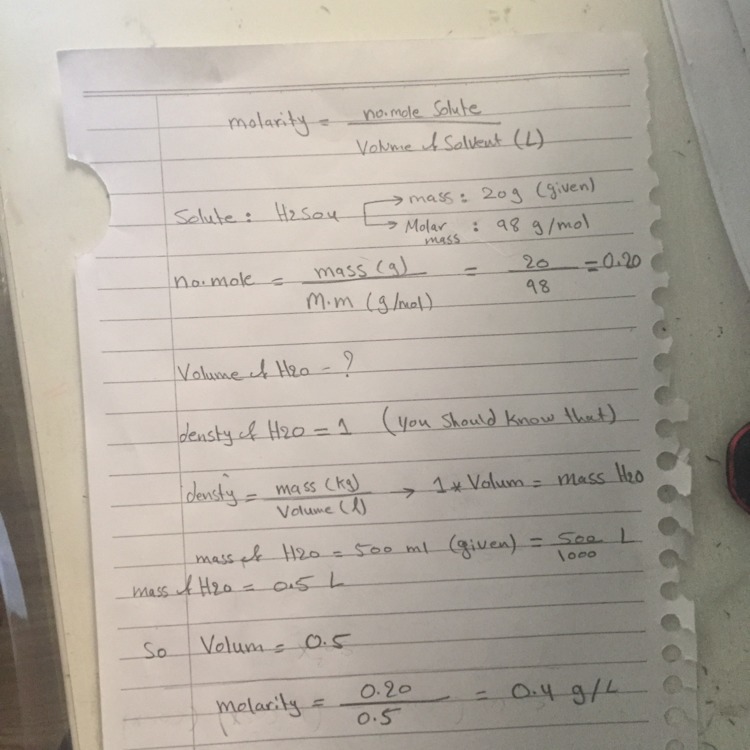 molarity = no.mole Solute / Volume of Solvent (L)
Solute : H2SO4 → mass : 20g (given)
→ Molar mass : 98 g/mol
no.mole = mass (g) / M.m (g/mol) = 20 / 98 = 0.20
Volume of H2O - ?
densty of H2O = 1 (you should know that)
densty = mass (kg) / Volume (l) → 1 * Volum = mass H2O
mass of H2O = 500 ml (given) = 500 / 1000 L
mass of H2O = 0.5 L
So Volum = 0.5
molarity = 0.20 / 0.5 = 0.4 g/L